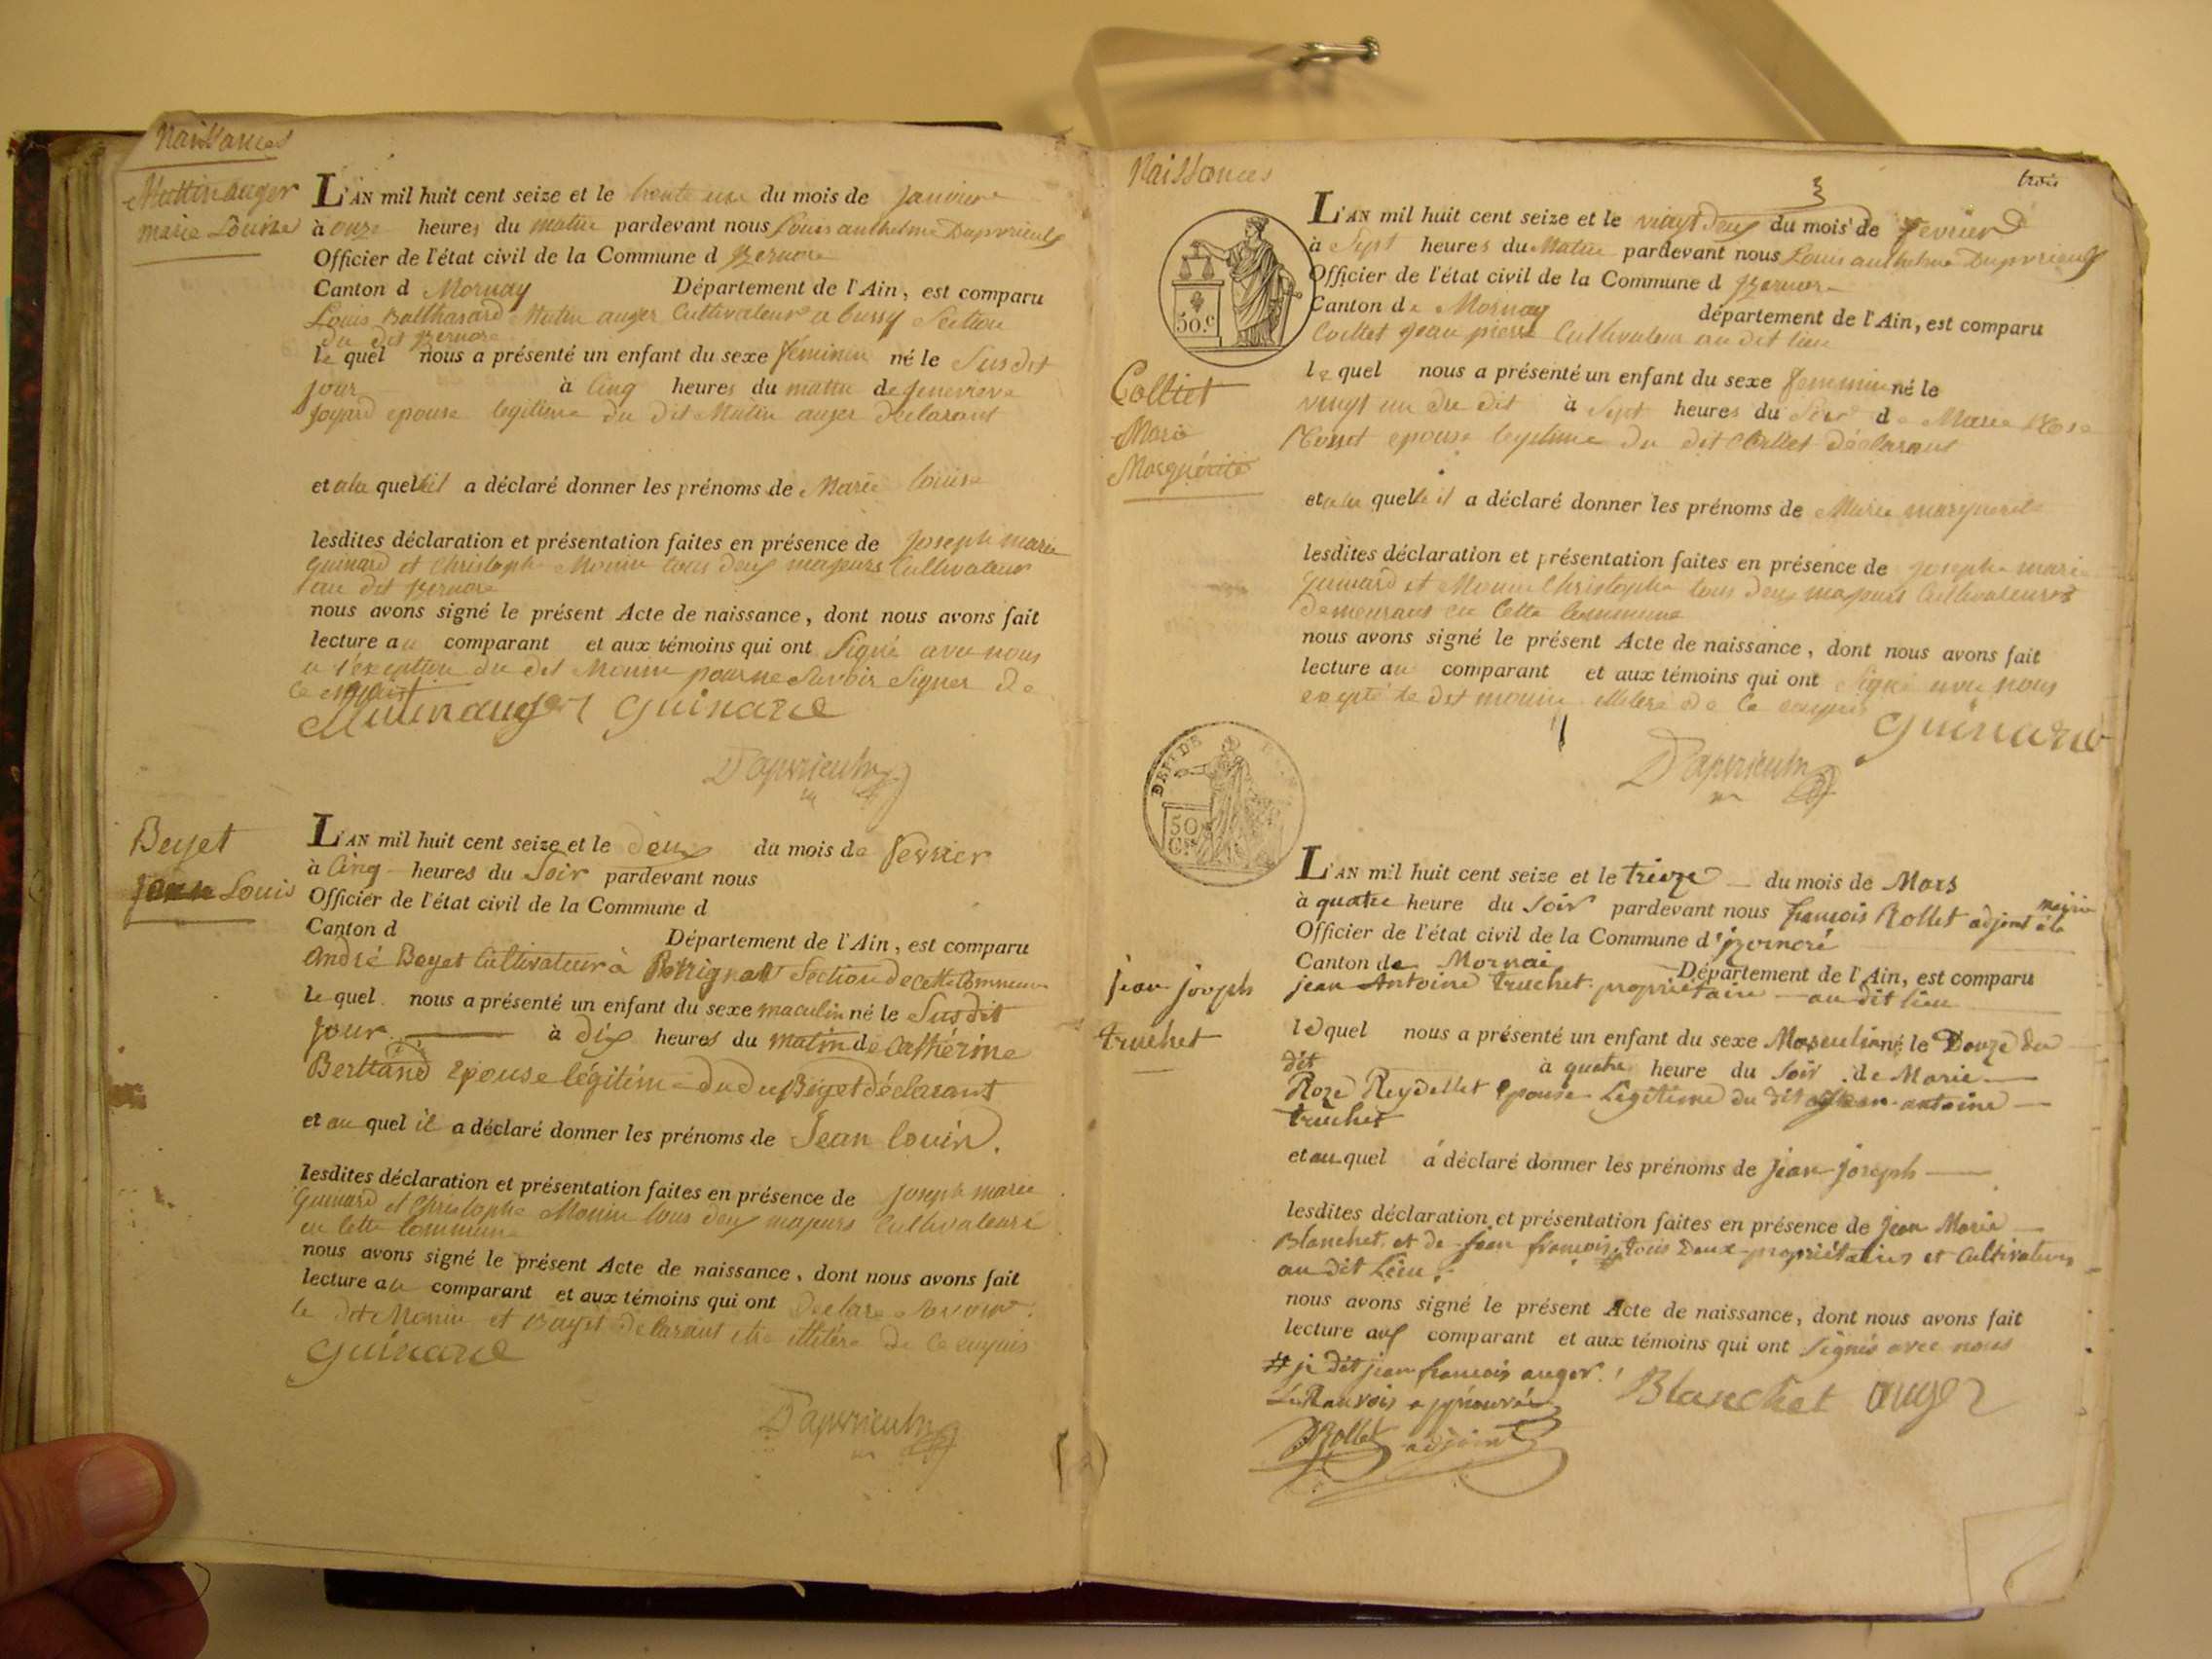 Naissances
Mattin auger
marie Louise
L'AN mil huit cent seize et le trente un du mois de Janvier
à onze heures du matin pardevant nous Louis anthelme
Officier de l'état civil de la Commune d Izernore
Canton d Mornay Département de l'Ain, est comparu
Louis Balthasard Mutin auger Cultivateur a bussy Section
du dit Izernore
le quel nous a présenté un enfant du sexe féminin né le Susdit
jour à Cinq heures du matin de genevieve
Joyard epouse legitime du dit Mutin auger declarant
et a la quelle il a déclaré donner les prénoms de Marie Louise
lesdites déclaration et présentation faites en présence de Joseph marie
guinard et Christophe Monin tous deux majeurs Cultivateur
au dit Izernore
nous avons signé le présent Acte de naissance, dont nous avons fait
lecture au comparant et aux témoins qui ont Signé avec nous
a l'exception du dit Monin pour ne Savoir Signer de
Ce enquis
Mutin auger guinard
Beyet
Jean Louis
L'AN mil huit cent seize et le deux du mois de fevrier
à Cinq heures du Soir pardevant nous
Officier de l'état civil de la Commune d
Canton d Département de l'Ain, est comparu
André Beyet Cultivateur à Perrignat Section de cette Commune
le quel nous a présenté un enfant du sexe maculin né le Susdit
jour à dix heures du matin de Cathérine
Berttand Epouse légitime du Beyet déclarant
et au quel il a déclaré donner les prénoms de Jean Louis.
lesdites déclaration et présentation faites en présence de Joseph marie
guinard et Christophe Monin tous deux majeurs Cultivateurs
en Cette Commune
nous avons signé le présent Acte de naissance, dont nous avons fait
lecture au comparant et aux témoins qui ont declare Savoir
le dit Monin et Bayet declarant etre illetéré de Ce enquis
guinard
Naissances
3
trois
50.c
Colliet
Marie
Marguérite
L'AN mil huit cent seize et le vingt deux du mois de Fevrier
à Sept heures du Matin pardevant nous Louis anthelme
Officier de l'état civil de la Commune d Izernore
Canton de Mornay département de l'Ain, est comparu
Colliet Jean pierre Cultivateur au dit lieu
le quel nous a présenté un enfant du sexe feminin né le
vingt un du dit à Sept heures du Soir de Marie Rose
epouse legitime du dit Colliet déclarant
et a la quelle il a déclaré donner les prénoms de Marie marguerite
lesdites déclaration et présentation faites en présence de joseph marie
guinard et Monin Christophe tous deux majeurs Cultivateurs
demeurant en Cette Commune
nous avons signé le présent Acte de naissance, dont nous avons fait
lecture au comparant et aux témoins qui ont Signé avec nous
excepté le dit monin illetéré de Ce enquis
guinard
50
jean joseph
truchet
L'AN mil huit cent seize et le treize du mois de Mars
à quatre heure du Soir pardevant nous françois Rollet adjoint à la mairie
Officier de l'état civil de la Commune d'izernore
Canton de Mornai Département de l'Ain, est comparu
jean Antoine truchet propriétaire au dit lieu
lequel nous a présenté un enfant du sexe Masculin né le Douze du
dit à quatre heure du Soir de Marie
Roze Reydellet Epouse Légitime du dit jean antoine
truchet
et au quel á déclaré donner les prénoms de jean joseph
lesdites déclaration et présentation faites en présence de jean Marie
Blanchet et de jean françois # tous Deux propriétaires et Cultivateurs
au dit Lieu.
nous avons signé le présent Acte de naissance, dont nous avons fait
lecture aux comparant et aux témoins qui ont Signés avec nous
# je dit jean françois auger.
Le Ranvois approuvée
Blanchet auger
Rollet adjoint